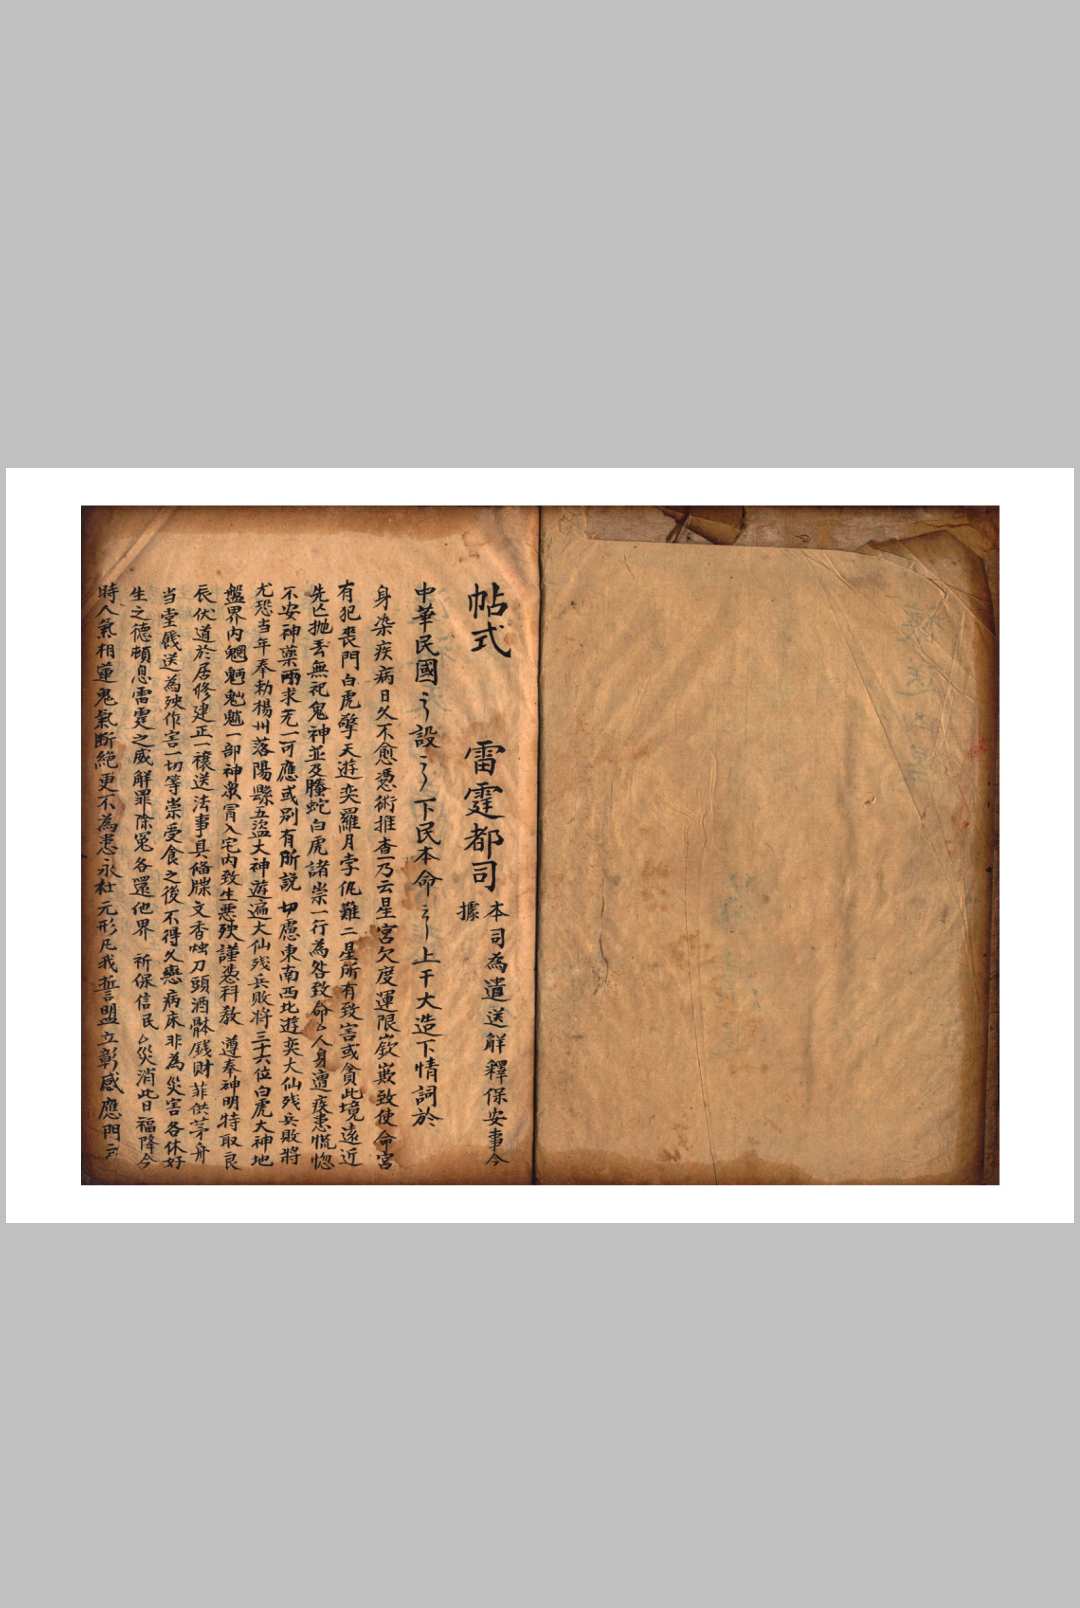 帖式　雷霆都司　本司為遣送解釋保安事今
據
中華民國　設　下民本命　上干大造下情詞於
身染疾病日久不愈憑術推查乃云星宮欠度運限嶔嶔致使命宮
有犯喪門白虎擎天遊奕羅月孛仇難二星所有致害或貪此境遠近
先亡拋丟無祀鬼神並及騰蛇白虎諸祟一行為咎致命人身遭疾患慌惚
不安神藥兩求无一可應或別有所說切慮東南西北遊奕大仙残兵敗將
尤恐当年奉勅楊州落陽縣五盜大神遊遍大仙残兵敗將三十六位白虎大神地
盤界内魍魎魁魃一部神眾胃入宅内致生悪殃謹憑科教　遵奉神明特取良
辰伏道於居修建正一禳送法事具俻牒文香烛刀頭酒餗銭財菲供茅舟
当堂餞送為殃作害一切等祟受食之後不得久戀病床非為災害各休好
生之德頓息雷霆之威解罪除冤各還他界　祈保信民災消此日福降今
時人氣相逢鬼氣断絶更不為患永杜元形凡我誓盟立彰感應門